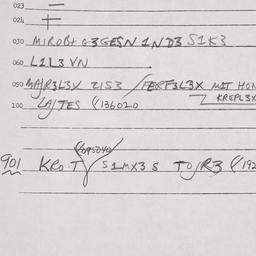 023 —
024 +
030 MIROB+ G3GESN 1ND3 S1K3
060 L1L3 VN
090 MAJR3L3X 2153 / FERF3L3X MIT HON
KREPL3X
100 LAJTES (/136020
901 KRO.T S1MX3S TOJR3 (/192